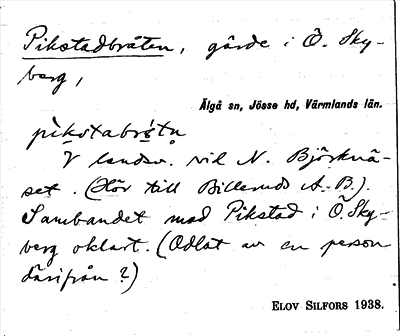 Pikstadbråten, gärde i Ö. Sky-
berg,
Älgå sn, Jösse hd, Värmlands län.
pìkstabrǻtn
V landsv. vid N. Björknä-
set. (Hör till Billeruds A.-B.).
Sambandet med Pikstad i Ö. Sky-
berg oklart. (Odlat av en person
därifrån?)
ELOV SILFORS 1938.